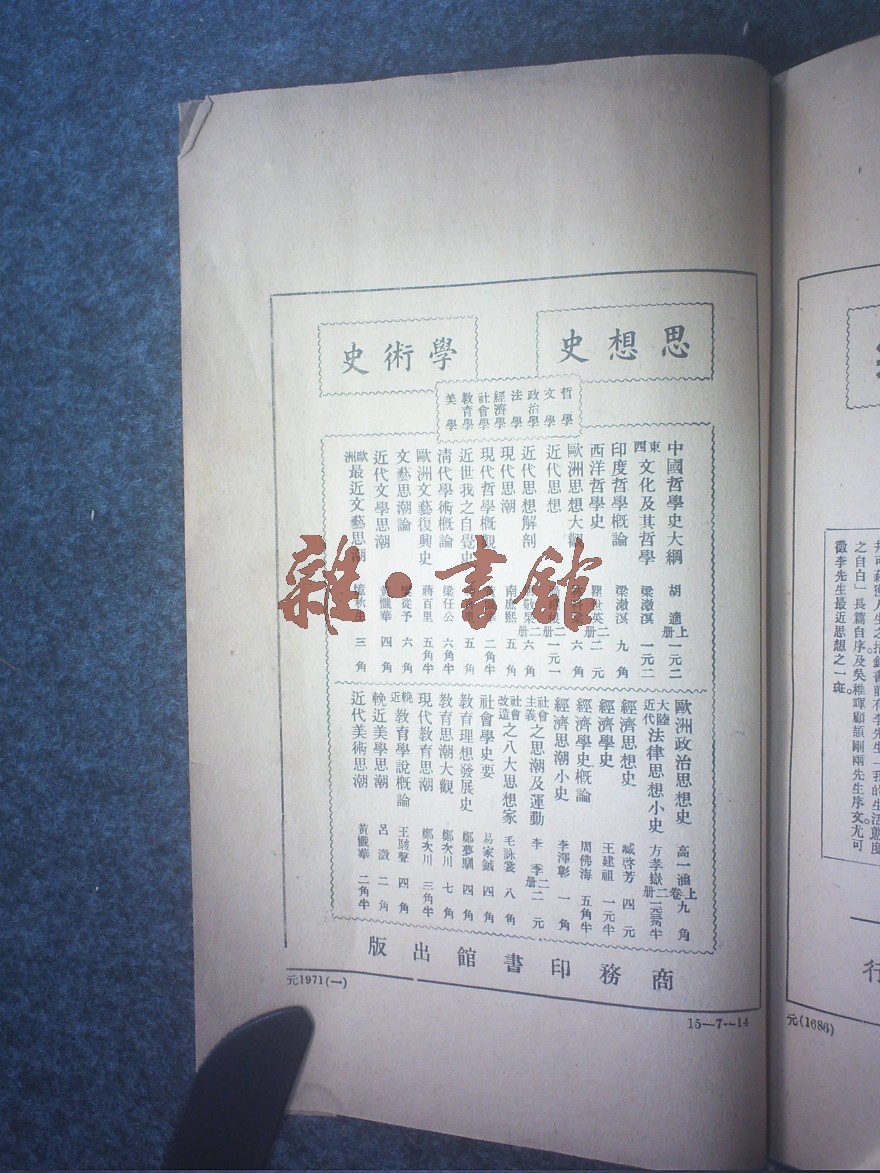 思想史
學術史
哲學
文學
政治學
法學
經濟學
社會學
教育學
美學
中國哲學史大綱 胡適 上 一元二
東西文化及其哲學 梁漱溟 一元二
印度哲學概論 梁漱溟 九角
西洋哲學史 瞿世英 二册 二元
歐洲思想大觀 六角
近代思想 二册 一元一
近代思想解剖 二册 六角
現代思潮 南庶熙 五角
現代哲學概觀 二角半
近世我之自覺史 五角
清代學術概論 梁任公 六角半
歐洲文藝復興史 蔣百里 五角半
文藝思潮論 從予 六角
近代文學思潮 黃懺華 四角
歐洲最近文藝思潮 三角
歐洲政治思想史 高一涵 上卷 九角
大陸近代法律思想小史 方孝嶽 二册
經濟思想史 臧啓芳 四元
經濟學史 王建祖 一元半
經濟學史概論 周佛海 五角半
經濟思潮小史 李澤彰 一角
社會主義之思潮及運動 李季 二册 二元
社會改造之八大思想家 毛詠棠 八角
社會學史要 易家鉞 四角
教育理想發展史 鄭夢馴 四角
教育思潮大觀 鄭次川 七角
現代教育思潮 鄭次川 三角半
輓近教育學說概論 王駿聲 四角
輓近美學思潮 呂澂 二角
近代美術思潮 黃懺華 二角半
商務印書館出版
元1971(一)
15—7—14
雜·書館
之自白」長篇自序及吳稚暉顧頡剛兩先生序文。尤可
徵李先生最近思想之一斑。
行
元(1686)